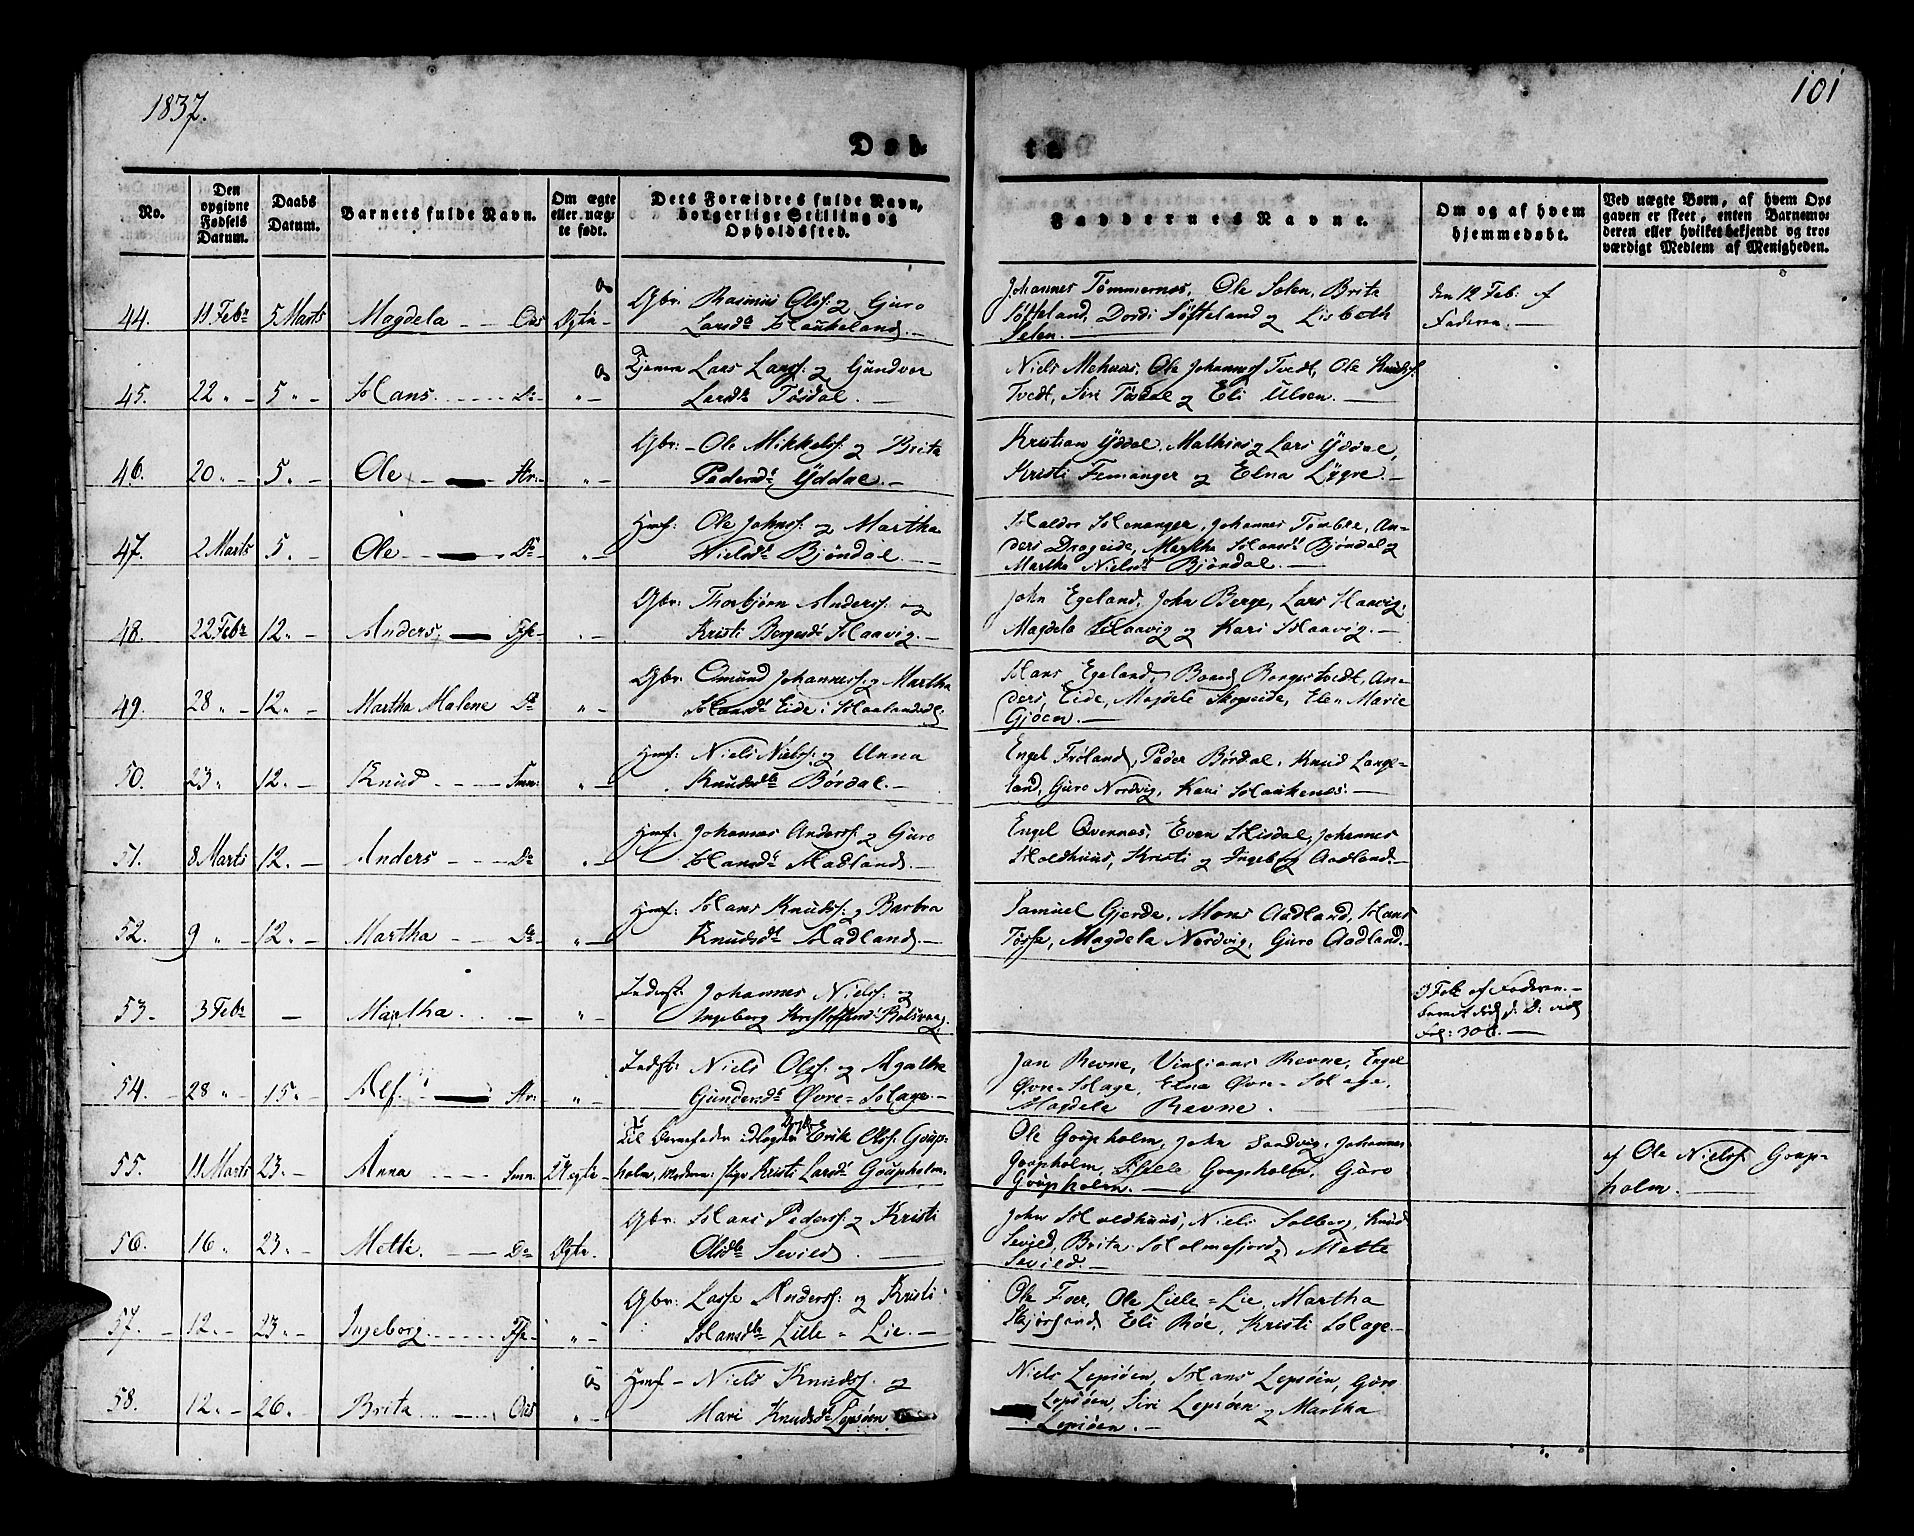 1837.
101
Døb-
te
No.
Den opgivne Fødsels Datum.
Daabs Datum.
Barnets fulde Navn.
Om ægte eller uæg-te født.
Dets Forældres fulde Navn, borgerlige Stilling og Opholdssted.
Faddernes Navne.
Om og af hvem hjemmedøbt.
Ved uægte Børn, af hvem Op-gaven er skeet, enten Barnemo-deren eller hvilket bekjendt og tro-værdigt Medlem af Menigheden.
44. 11 Febr 5 Marts Magdela Os Ægte Gbr. Rasmus Olss: og Guro
Larsdr Haukeland.
Johannes Tømmernes, Ole Sælen, Brite
Søfteland, Dordi Søfteland og Lisbeth
Selen.
den 12 Feb: af
Faderen.
45. 22 " 5 " Hans Do " Os Tjenere Lars Larss: og Gundvor
Larsdr Tøsdal.
Niels Mehuus, Ole Johanness Tvedt, Ole Knuds:
Tvedt, Siri Tøsdal og Eli Ulven.
46. 20 " 5 " Ole Str: " Gbr: Ole Mikkels: og Brita
Pedersdr Yddal.
Kristian Yddal, Mathias og Lars Yddal,
Kristi Femanger og Elna Lygre.
47. 2 Marts 5 " Ole Do " Hmf: Ole Johnss: og Martha
Nielsdr Bjøndal.
Haldor Henanger, Johannes Tombre, An-
ders Drageide, Martha Hansdr Bjøndal og
Martha Nielsdr Bjøndal.
48. 22 Febr 12. Anders " Gbr: Thorbjørn Anderss: og
Kristi Bergesdr Haavig.
John Egeland, John Berge, Lars Haavig,
Magdela Haavig og Kari Haavig.
49. 28 " 12. Martha Malene Do " Gbr Omund Johanness: og Martha
Hansdr Eide i Haalandsdl:
Hans Egeland, Baard Bergestvedt, An-
ders Eide, Magdele Skogseide, Elen Marie
Gjøen.
50. 23 " 12. Knud Smn: " Hmf: Niels Nielss: og Anna
Knudsdr Bördal.
Engel Frøland, Peder Bördal, Knud Lange-
land, Guro Nordvig, Kari Haukenes.
51. 8 Marts 12. Anders Do " Hmf: Johannes Anderss: og Guro
Hansdr Aadland.
Engel Qvernes, Even Hisdal, Johannes
Holdhuus, Kristi og Ingeborg Aadland.
52. 9 " 12. Martha Do " Hmf: Hans Knudss: og Barbra
Knudsdr Aadland.
Samuel Gjerde, Mons Aadland, Hans
Tøsse, Magdela Nordvig, Guro Aadland.
53. 3 Febr Martha " Inderst: Johannes Nielss: og
Ingeborg
3 Feb: af Faderen.
Fol: 306.
54. 28 " 15. Alf. Str: " Indst: Niels Olss: og Agathe
Gundersdr Øvre-Hage.
Jan Revne, Revne, Engel
Øvre-Hage, Elna Øvre-Hage,
Magdela Revne.
55. 11 Marts 23. Anna Smn: Uægte Til Barnefader udlagdes Erik Olss: Goup-
holm, Moderen: Pige Kristi Larsdr Goupholm.
Ole Goupholm, John Sandvig, Johannes
Goupholm, Goupholm, Guro
Goupholm.
af Ole Nielss: Goup-
holm.
56. 16 " 23. Mette. Do Ægte. Gbr: Hans Pederss: og Kristi
Olsdr Sevild
John Holdhuus, Niels Solberg, Knud
Sevild, Brita Holmefjord og Mette
Sevild.
57. 12. 23. Ingeborg " Gbr: Lasse Anderss: og Kristi
Hansdr Lille-Lie.
Ole Foer, Ole Lille-Lie, Martha
Skjørsand, Eli Røe, Kristi Hage-
58. 12. 26. Brita Os " Hmf Niels Knuds: og
Mari Knudsdr Lepsøen
Niels Lepsøen, Hans Lepsøen, Guro
Lepsøen, Siri Lepsøen og Martha
Lepsøen.